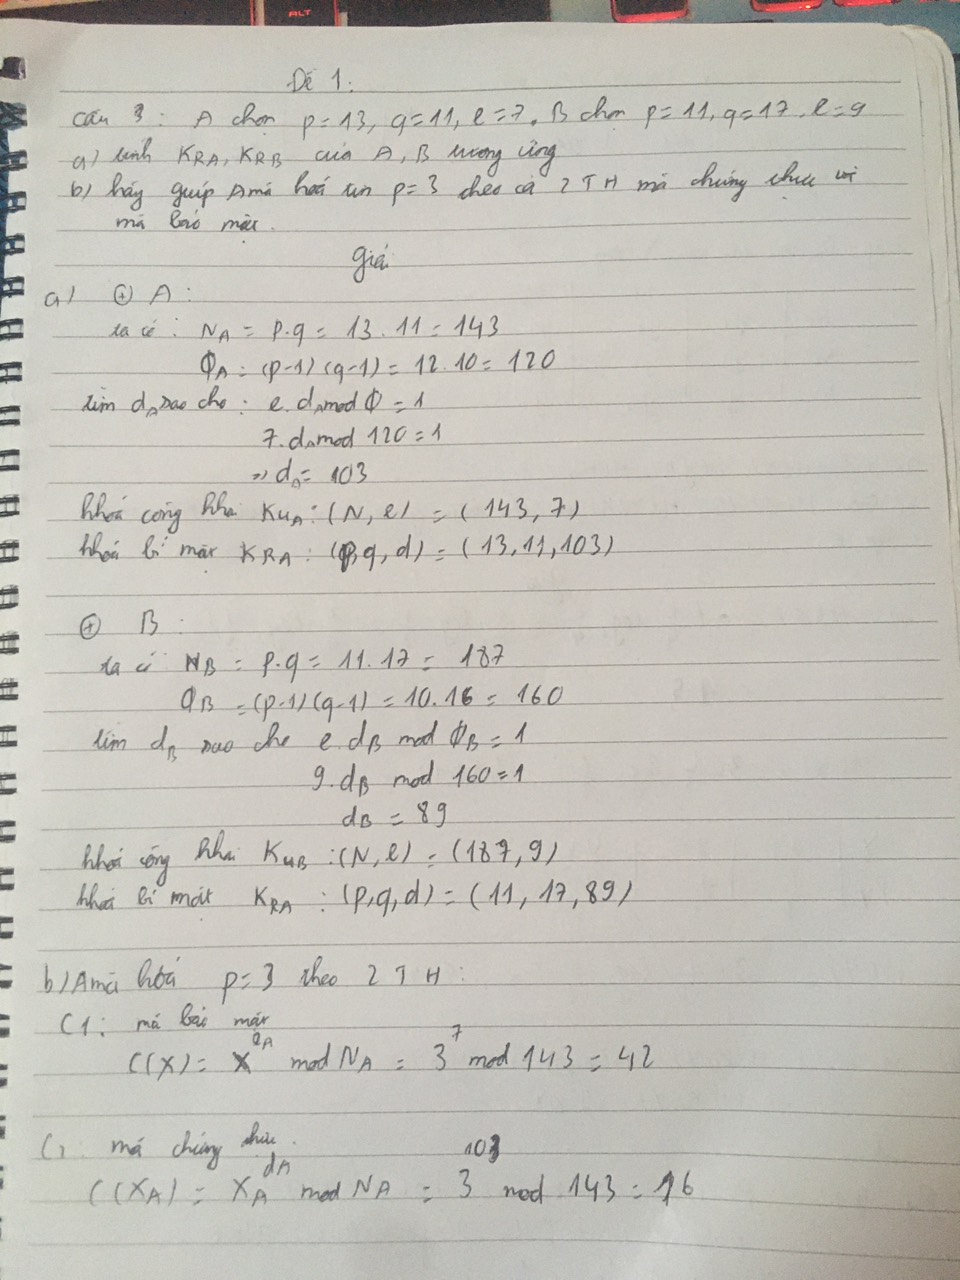 ALT
Đề 1:
Câu 3: A chọn p=13, q=11, e=7. B chọn p=11, q=17, e=9
a) tính KRA, KRB của A, B tương ứng
b) hãy giúp A mã hoá tin p=3 theo cả 2 TH mã chứng thực và
mã bảo mật.
Giải
a) ⊕ A:
ta có: NA = p.q = 13.11 = 143
ΦA = (p-1)(q-1) = 12.10 = 120
tìm dA sao cho: e.dA mod Φ = 1
7.dA mod 120 = 1
=> dA = 103
khoá công khai KUA: (N, e) = (143, 7)
khoá bí mật KRA: (p, q, d) = (13, 11, 103)
⊕ B:
ta có NB = p.q = 11.17 = 187
ΦB = (p-1)(q-1) = 10.16 = 160
tìm dB sao cho e.dB mod ΦB = 1
9.dB mod 160 = 1
dB = 89
khoá công khai KUB: (N, e) = (187, 9)
khoá bí mật KRA: (p, q, d) = (11, 17, 89)
b) A mã hoá p=3 theo 2 TH:
C1: mã bảo mật
C(X) = X^eA mod NA = 3^7 mod 143 = 42
mã chứng thực.
C(XA) = XA^dA mod NA = 3^103 mod 143 = 16